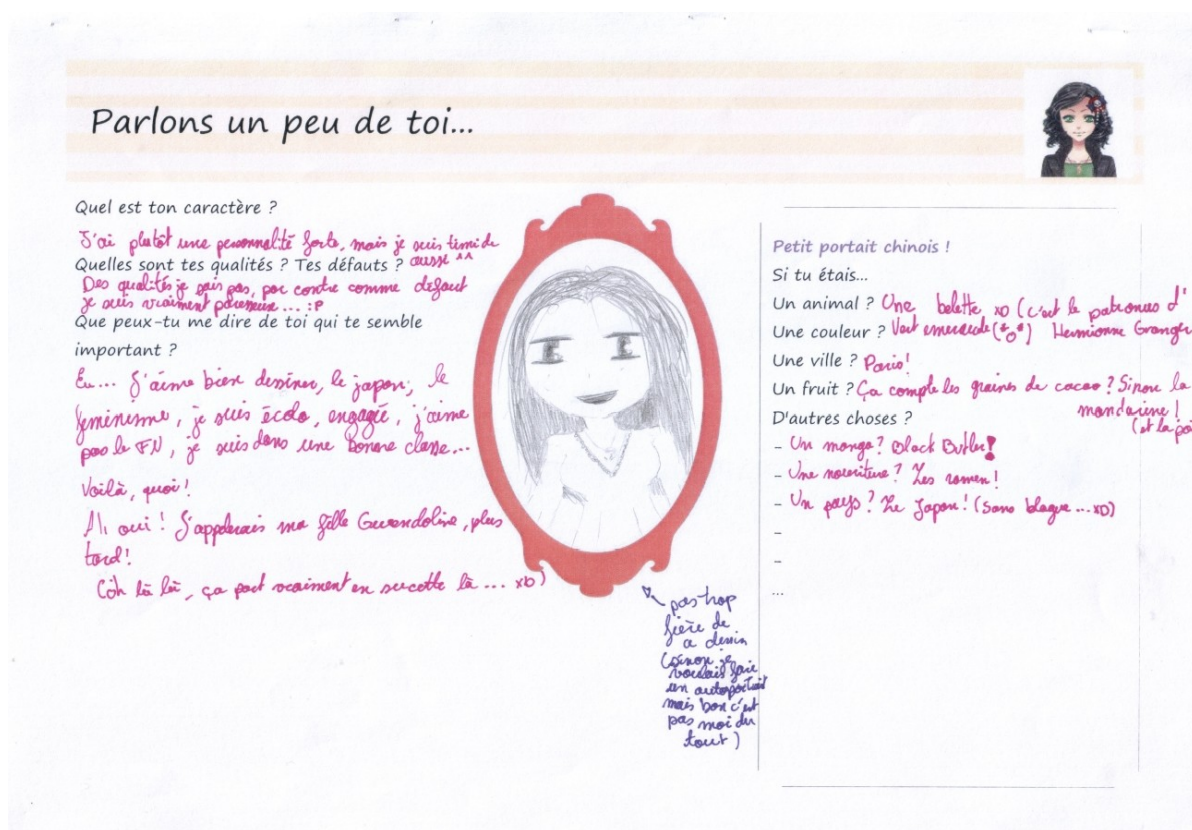 Parlons un peu de toi...
Quel est ton caractère ?
J'ai plutôt une personnalité forte, mais je suis timide
aussi ^^
Quelles sont tes qualités ? Tes défauts ?
Des qualités je sais pas, par contre comme défaut
je suis vraiment paresseuse... :P
Que peux-tu me dire de toi qui te semble
important ?
Eu... J'aime bien dessiner, le japon, le
feminisme, je suis écolo, engagée, j'aime
pas le FN, je suis dans une bonne classe...
Voilà, quoi !
Ah oui ! J'applerais ma fille Gwendoline, plus
tard !
(Oh là là, ça part vraiment en sucette là ... xD)
pas trop
fière de
a dessin
(sinon je
voulais faire
un autoportrait
mais bon c'est
pas moi du
tout)
Petit portait chinois !
Si tu étais...
Un animal ? Une belette xD (c'est le patronus d'
Hermionne Granger
Une couleur ? Vert emeraude (*o*)
Une ville ? Paris !
Un fruit ? Ça compte les graines de cacao ? Sinon la
mandarine !
(et la
D'autres choses ?
- Un manga ? Black Butler !
- Une nourriture ? Les ramen !
- Un pays ? Le Japon ! (Sans blague ... xD)
-
-
...